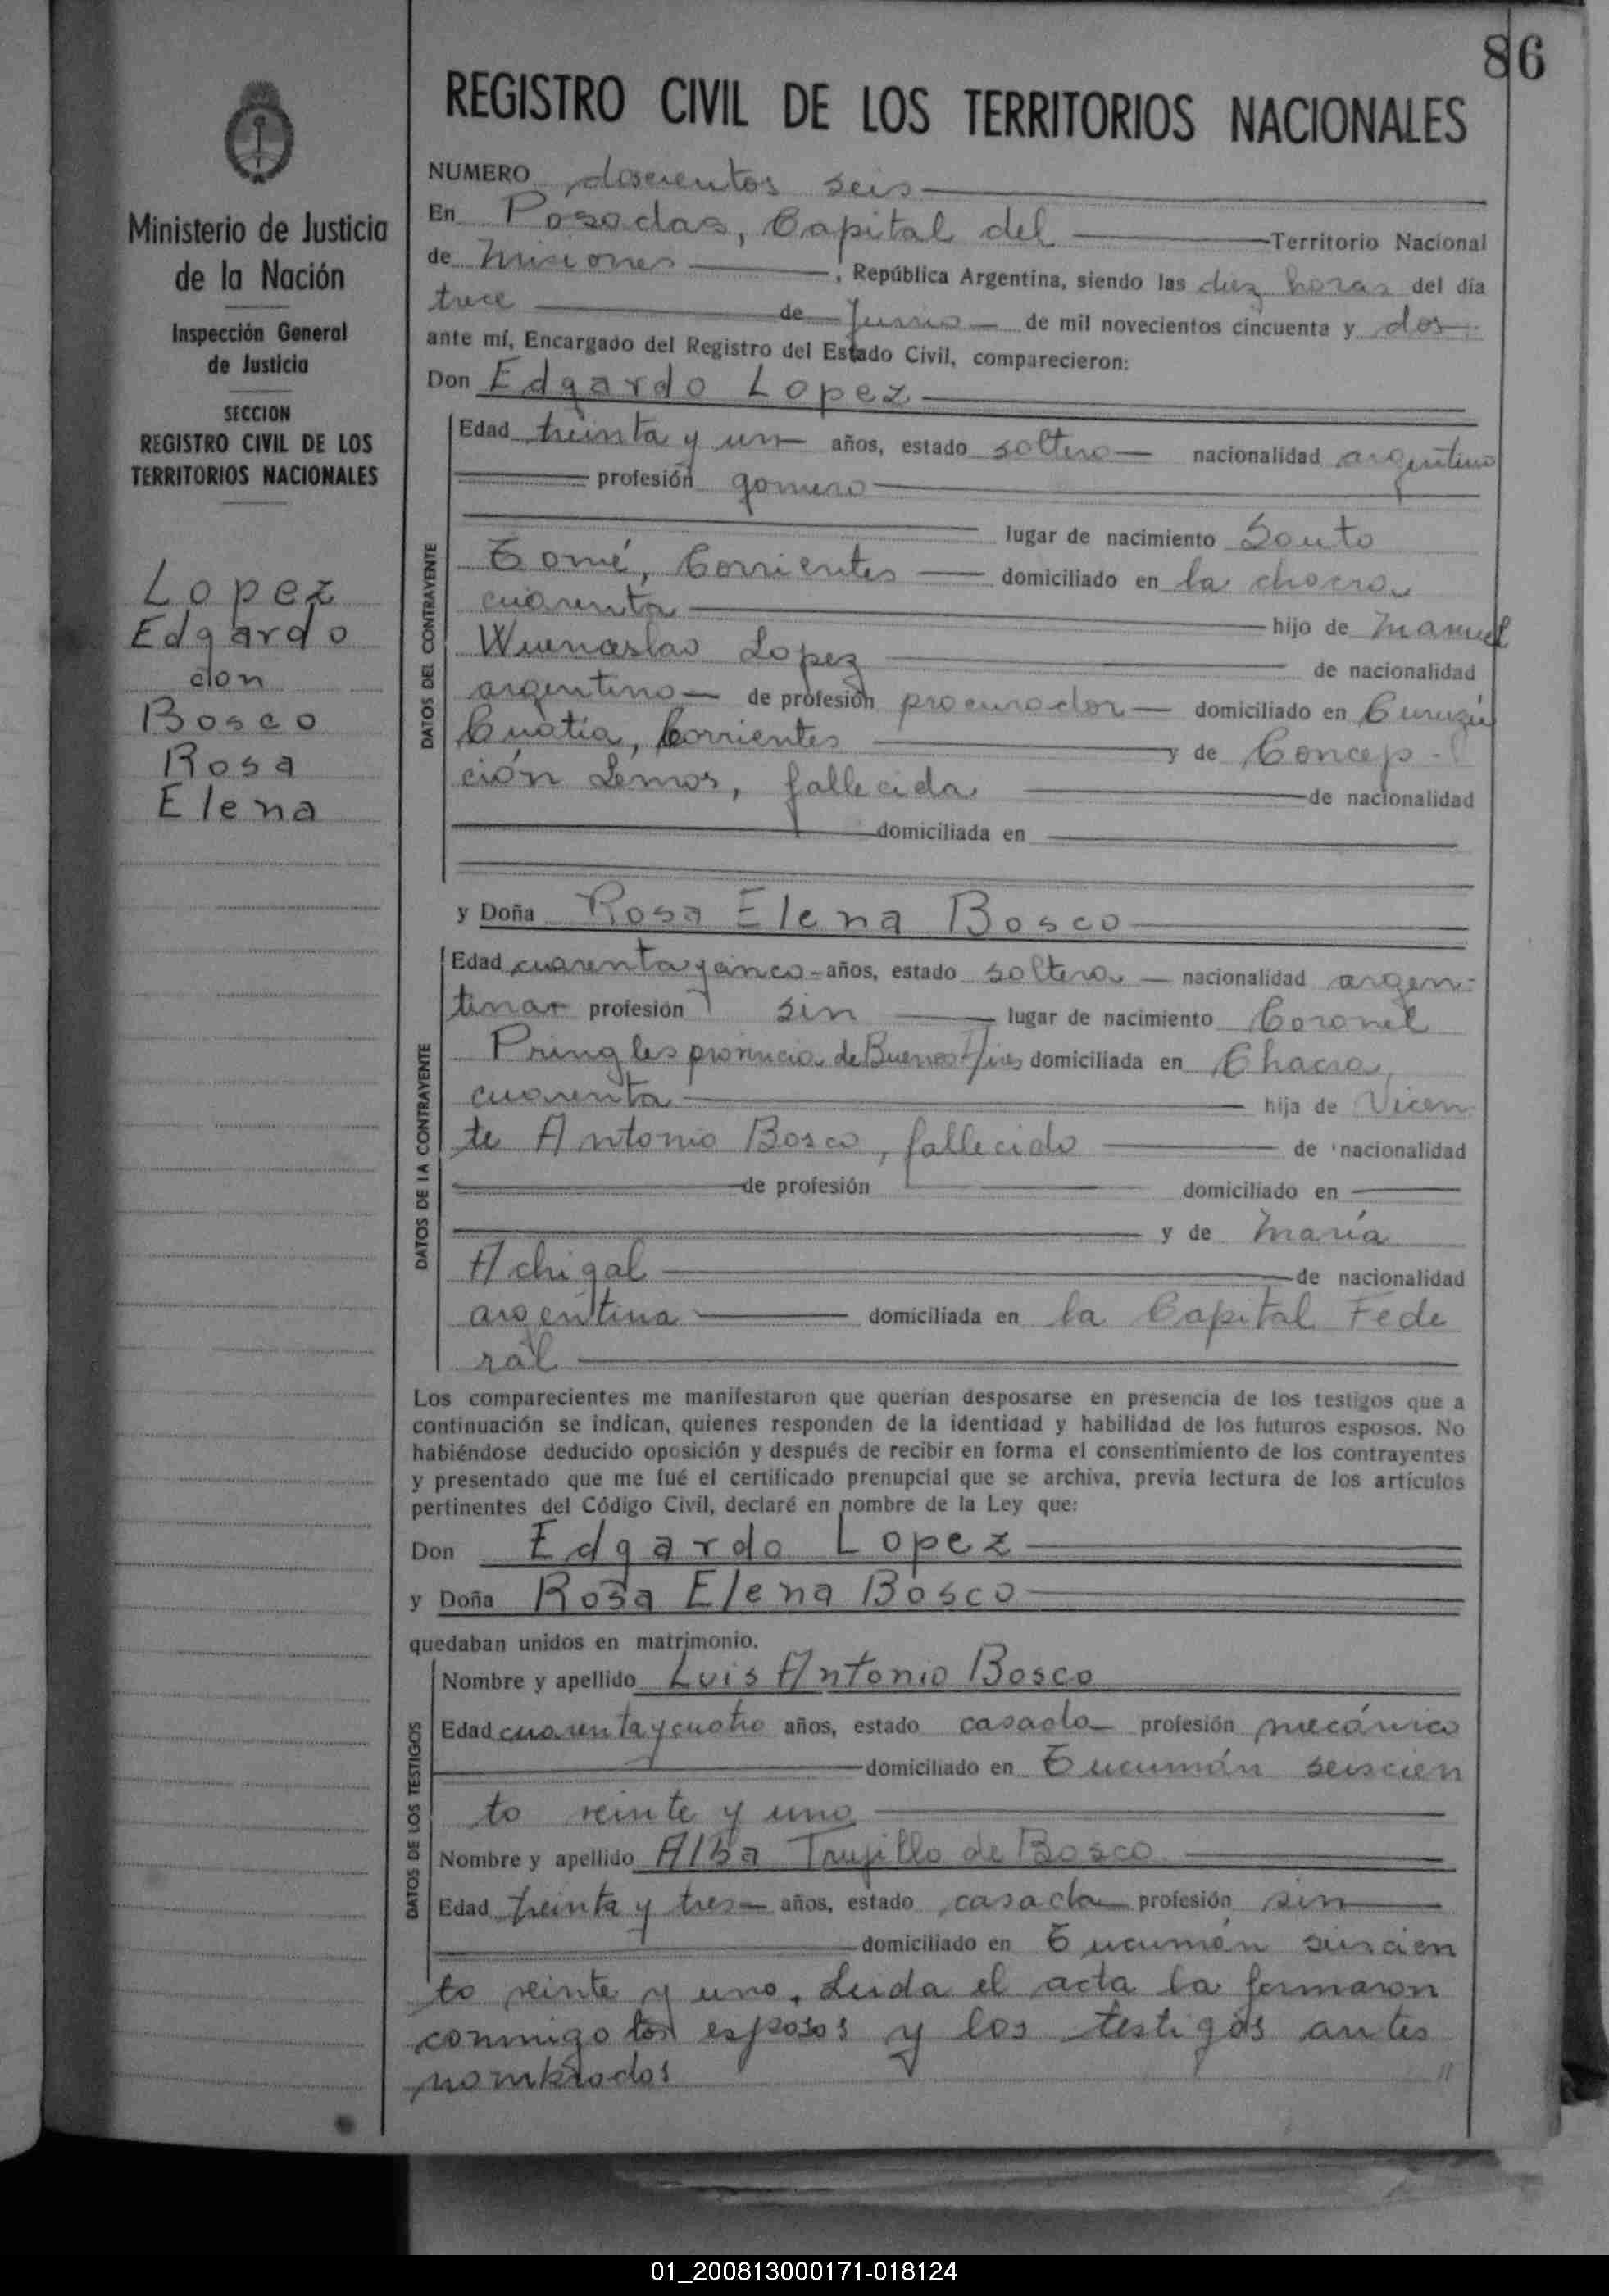 86
REGISTRO CIVIL DE LOS TERRITORIOS NACIONALES
Ministerio de Justicia
de la Nación
Inspección General
de Justicia
SECCION
REGISTRO CIVIL DE LOS
TERRITORIOS NACIONALES
Lopez
Edgardo
con
Bosco
Rosa
Elena
NUMERO doscientos seis
En Posadas, Capital del Territorio Nacional
de Misiones, República Argentina, siendo las diez horas del día
trece de Junio de mil novecientos cincuenta y dos
ante mí, Encargado del Registro del Estado Civil, comparecieron:
Don Edgardo Lopez
DATOS DEL CONTRAYENTE
Edad treinta y un años, estado soltero nacionalidad argentino
profesión gomero
lugar de nacimiento Santo
Tomé, Corrientes domiciliado en la chacra
cuarenta hijo de Manuel
Lopez de nacionalidad
argentino de profesión procurador domiciliado en Curuzú
Cuatia, Corrientes y de Concep-
ción Lemos, fallecida de nacionalidad
domiciliada en
y Doña Rosa Elena Bosco
DATOS DE LA CONTRAYENTE
Edad cuarenta y cinco años, estado soltera nacionalidad argen-
tina profesión sin lugar de nacimiento Coronel
Pringles provincia de Buenos Aires domiciliada en Chacra
cuarenta hija de Vicen-
te Antonio Bosco, fallecido de nacionalidad
de profesión domiciliado en
y de María
Achigal de nacionalidad
argentina domiciliada en la Capital Fede
ral
Los comparecientes me manifestaron que querían desposarse en presencia de los testigos que a
continuación se indican, quienes responden de la identidad y habilidad de los futuros esposos. No
habiéndose deducido oposición y después de recibir en forma el consentimiento de los contrayentes
y presentado que me fué el certificado prenupcial que se archiva, previa lectura de los artículos
pertinentes del Código Civil, declaré en nombre de la Ley que:
Don Edgardo Lopez
y Doña Rosa Elena Bosco
quedaban unidos en matrimonio.
DATOS DE LOS TESTIGOS
Nombre y apellido Luis Antonio Bosco
Edad cuarenta y cuatro años, estado casado profesión mecánico
domiciliado en Tucumán seiscien
to veinte y uno
Nombre y apellido Alba Trujillo de Bosco
Edad treinta y tres años, estado casada profesión sin
domiciliado en Tucumán seiscien
to veinte y uno. Leida el acta la firmaron
conmigo los esposos y los testigos antes
nombrados
01_200813000171-018124